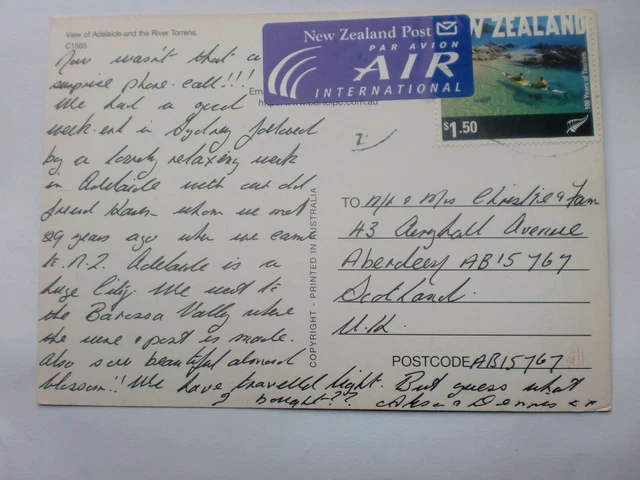 View of Adelaide and the River Torrens.
C1565
Now wasn't that a
surprise phone call!!!
We had a good
week-end in Sydney followed
by a lovely relaxing week
in Adelaide with our old
friend whom we met
29 years ago when we came
to N.Z. Adelaide is a
huge City. We went to
the Barossa Valley where
the wine & port is made.
Also saw beautiful almond
blossom!! We have travelled light. But guess what
I bought??
New Zealand Post
PAR AVION
AIR
INTERNATIONAL
NEW ZEALAND
100 Years of Tourism
$1.50
COPYRIGHT - PRINTED IN AUSTRALIA
TO Mr & Mrs Christie & Fam
43 Avenue
Aberdeen AB15 7
Scotland.
U.K.
POSTCODE AB15 7